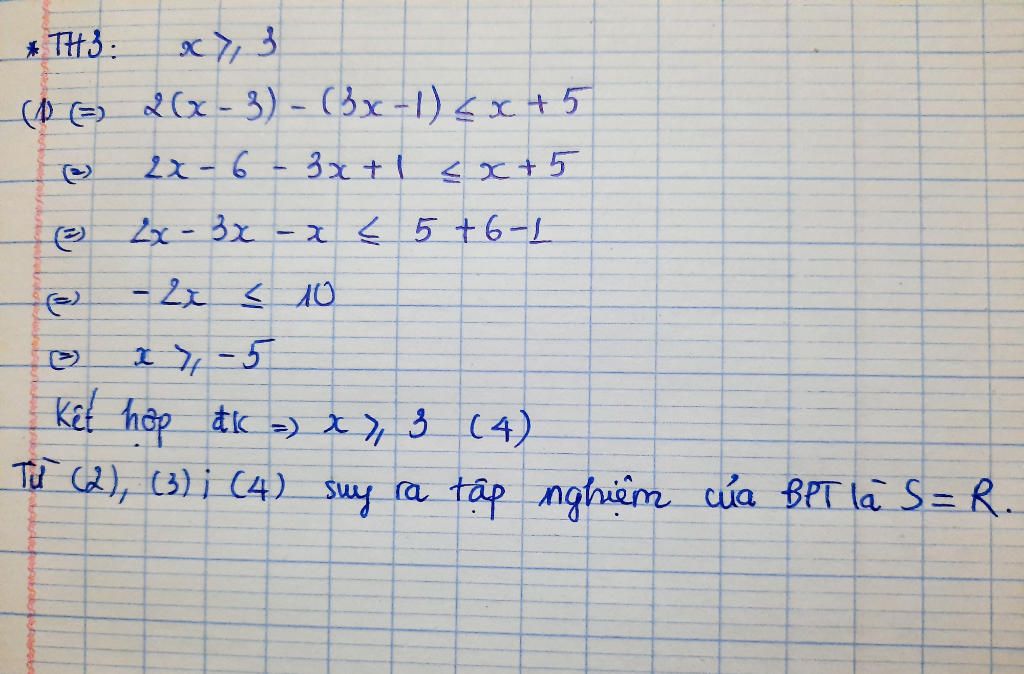 * TH3: x ≥ 3
(1) (=) 2(x - 3) - (3x - 1) ≤ x + 5
(=) 2x - 6 - 3x + 1 ≤ x + 5
(=) 2x - 3x - x ≤ 5 + 6 - 1
(=) - 2x ≤ 10
(=) x ≥ - 5
Kết hợp đk => x ≥ 3 (4)
Từ (2), (3); (4) suy ra tập nghiệm của BPT là S = R.